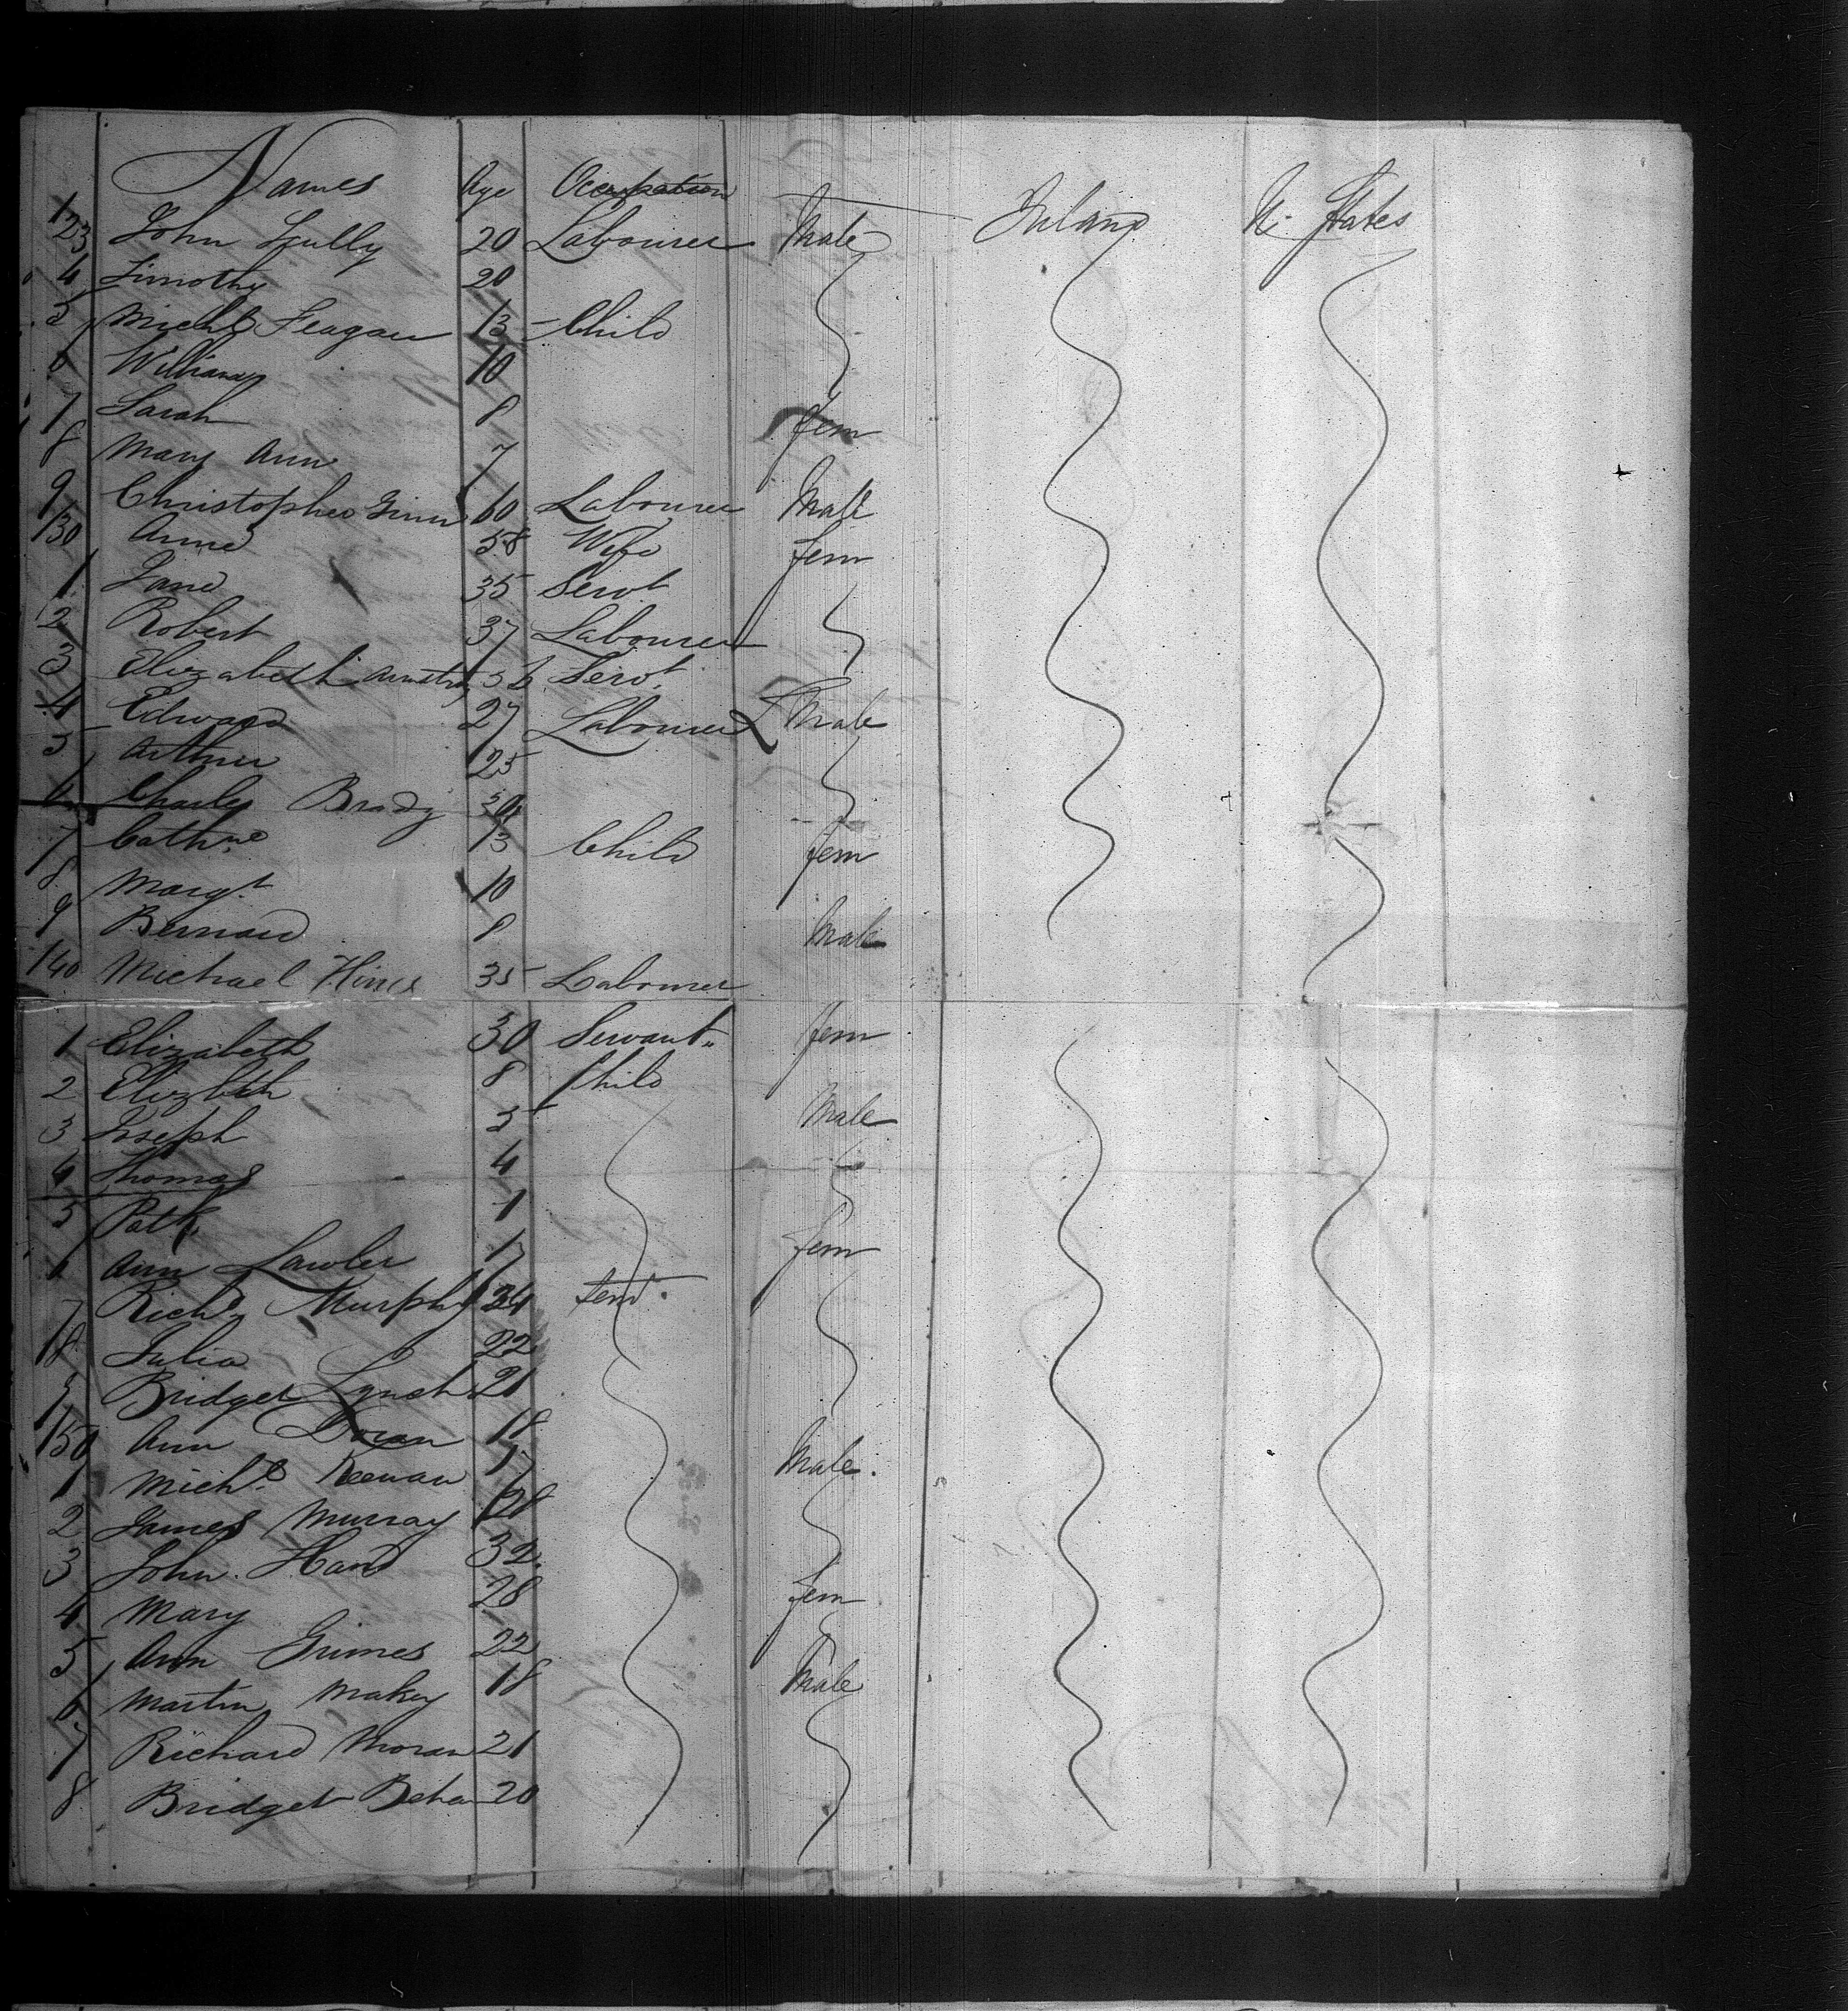 Names Age Occupation
Male Ireland U. States
123 John Lully 20 Labourer
4 Timothy 20
5 Michl Feagan 13 Child
6 William 10
7 Sarah 8 fem
8 Mary Ann 7
9 Christopher 60 Labourer Male
130 Anne 58 Wife fem
1 Jane 35 Servt
2 Robert 37 Labourer
3 Elizabeth Servt
4 Edward 27 Labourer Male
5 Arthur 25
6 Charles Brady
7 Cathne 13 Child fem
8 Margt 10
9 Bernard 8 Male
140 Michael Hines 35 Labourer
1 Elizabeth 30 Servant fem
2 Elizbth 8 Child
3 Joseph 5 Male
4 Thomas 4
5 Patk 1
6 Ann Lawler 17 fem
7 Richd Murphy 24
8 Julia 22
9 Bridget Lynch 21
150 Ann Doran 18
1 Michl Keenan 17 Male
2 James Murray 28
3 John Hand 32
4 Mary 28 fem
5 Ann Grimes 22
6 Martin Makey 18 Male
7 Richard Moran 21
8 Bridget Beha 20